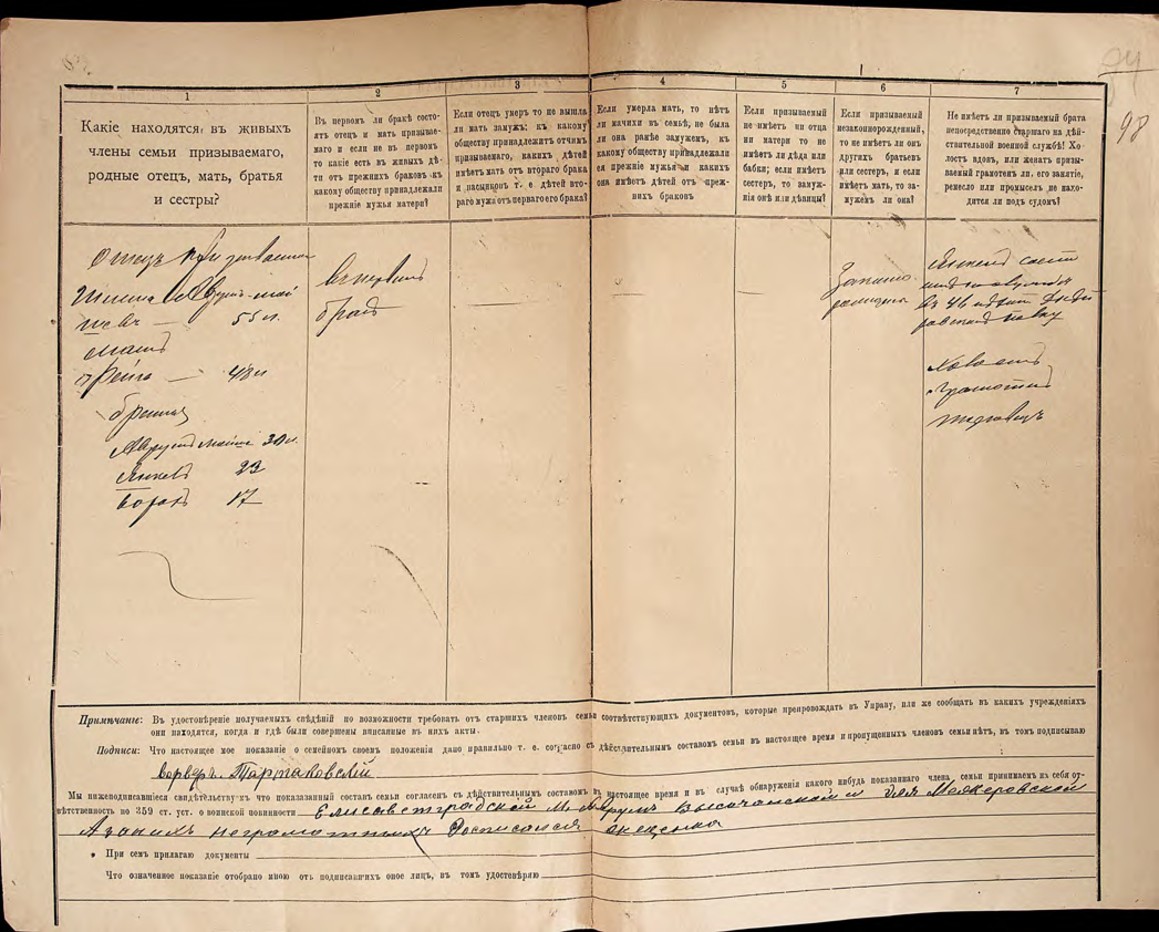 94
98
1
2
3
4
5
6
7
Какіе находятся въ живыхъ
члены семьи призываемаго,
родные отецъ, мать, братья
и сестры?
Въ первомъ ли бракѣ состо-
ятъ отецъ и мать призывае-
маго и если не въ первомъ
то какіе есть въ живыхъ дѣ-
ти отъ прежнихъ браковъ къ
какому обществу принадлежали
прежніе мужья матери?
Если отецъ умеръ то не вышла
ли мать замужъ: къ какому
обществу принадлежитъ отчимъ
призываемаго, какихъ дѣтей
имѣетъ мать отъ втораго брака
и пасынковъ т. е. дѣтей вто-
раго мужа отъ перваго его брака?
Если умерла мать, то нѣтъ
ли мачихи въ семьѣ, не была
ли она ранѣе замужемъ, къ
какому обществу принадлежали
ея прежніе мужья и какихъ
она имѣетъ дѣтей отъ преж-
нихъ браковъ
Если призываемый
не имѣетъ ни отца
ни матери то не
имѣетъ ли дѣда или
бабки; если имѣетъ
сестеръ, то замуж-
нія онѣ или дѣвицы?
Если призываемый
незаконнорожденный,
то не имѣетъ ли онъ
другихъ братьевъ
или сестеръ, и если
имѣетъ мать, то за-
мужемъ ли она?
Не имѣетъ ли призываемый брата
непосредственно старшаго на дѣй-
ствительной военной службѣ! Хо-
лостъ вдовъ, или женатъ призы-
ваемый грамотенъ ли, его занятіе,
ремесло или промыселъ не нахо-
дится ли подъ судомъ?
Отецъ
55 л.
мать
48 л
братья
30 л.
Янкель 23
17
въ первомъ
бракѣ
Янкель
въ 46
полку
грамотный
Примѣчаніе: Въ удостовѣреніе получаемыхъ свѣдѣній по возможности требовать отъ старшихъ членовъ семьи соотвѣтствующихъ документовъ, которые препровождать въ Управу, или же сообщать въ какихъ учрежденіяхъ
они находятся, когда и гдѣ были совершены вписанные въ нихъ акты.
Подписи: Что настоящее мое показаніе о семейномъ своемъ положенія дано правильно т. е. согласно съ дѣйствительнымъ составомъ семьи въ настоящее время и пропущенныхъ членовъ семьи нѣтъ, въ томъ подписываю
Тартаковскій
Мы нижеподписавшіеся свидѣтельствуемъ что показазанный составъ семьи согласенъ съ дѣйствительнымъ составомъ въ настоящее время и въ случкѣ обнаруженія какого нибудь показаннаго члена семьи принимаемъ на себя от-
вѣтственность по 359 ст. уст. о воинской повинности Елисаветградской М.
неграмотныхъ росписался
При семъ прилагаю документы
Что означенное показаніе отобрано мною отъ подписавшихъ оное лицъ, въ томъ удостовѣряю